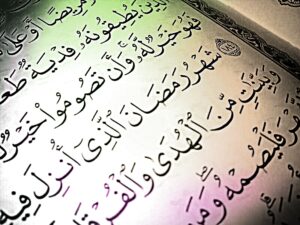 مَّرِيضًا أَوْ عَلَى
يُطِيقُونَهُۥ فِدْيَةٌ
خَيْرٌ لَّهُۥ وَأَن تَصُومُوا۟ خَيْرٌ
١٨٤ شَهْرُ رَمَضَانَ ٱلَّذِىٓ أُنزِلَ فِيهِ
وَبَيِّنَٰتٍ مِّنَ ٱلْهُدَىٰ وَٱلْفُرْقَا
فَلْيَصُمْهُ وَمَن